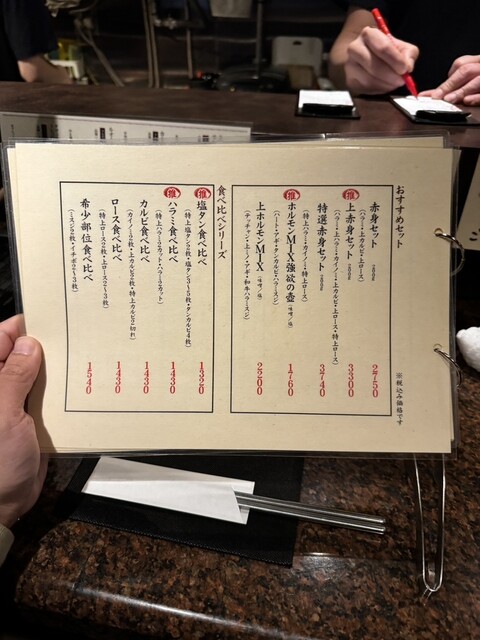 おすすめセット
※税込み価格です
赤身セット 200g
(ハラミ・上カルビ・上ロース)
2750
推 上赤身セット 200g
(ハラミ・上ハラミ・カイノミ・上カルビ・上ロース・特上ロース)
3300
特選赤身セット 200g
(特上ハラミ・カイノミ・特上ロース)
3740
推 ホルモンMIX強欲の壺(味噌/塩)
(ハート・アギ・タンカルビ・ハラミスジ)
1760
上ホルモンMIX(味噌/塩)
(テッチャン・上ミノ・アギ・和牛ハラミスジ)
2200
食べ比べシリーズ
推 塩タン食べ比べ
(特上塩タン2枚・塩タン3〜5枚・タンカルビ4枚)
1320
推 ハラミ食べ比べ
(特上ハラミ2カット・ハラミ2カット)
1430
カルビ食べ比べ
(カイノミ2枚・上カルビ2枚・特上カルビ2切れ)
1430
ロース食べ比べ
(特上ロース2枚・上ロース2〜3枚)
1430
希少部位食べ比べ
(ミスジ2枚・イチボ2〜3枚)
1540